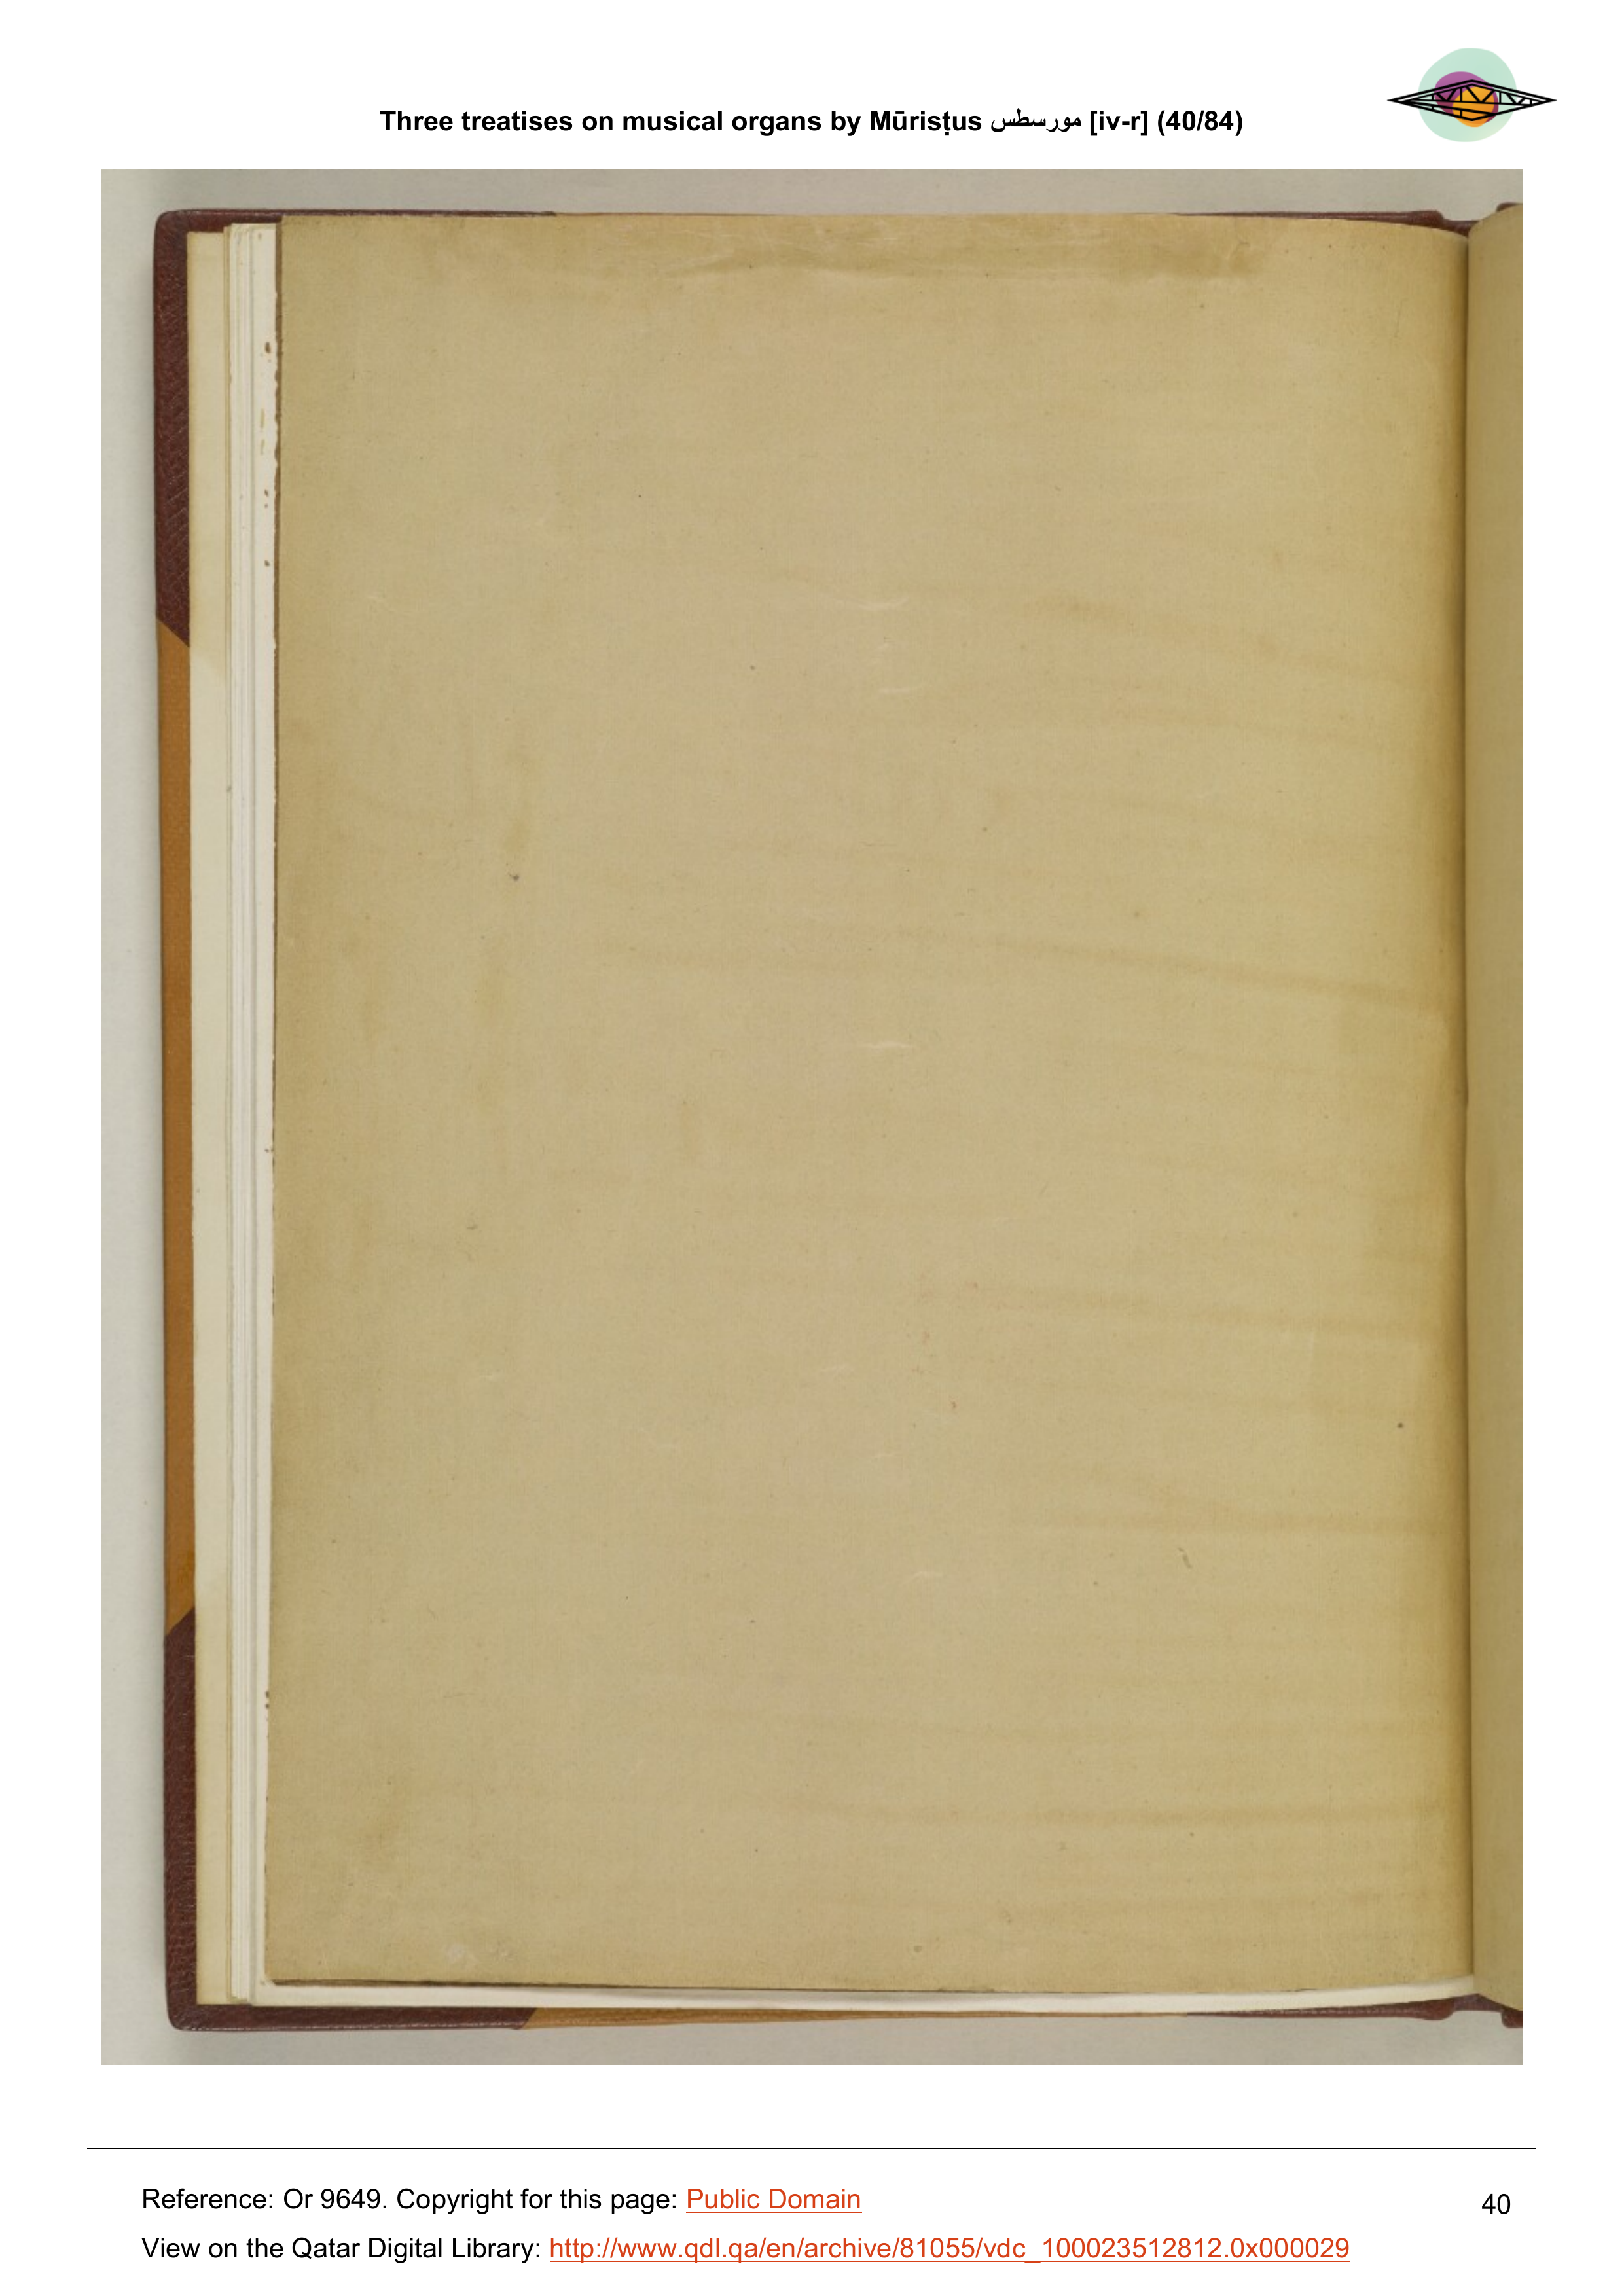 Three treatises on musical organs by Mūrisṭus مورسطس [iv-r] (40/84)
Reference: Or 9649. Copyright for this page: Public Domain
40
View on the Qatar Digital Library: http://www.qdl.qa/en/archive/81055/vdc_100023512812.0x000029